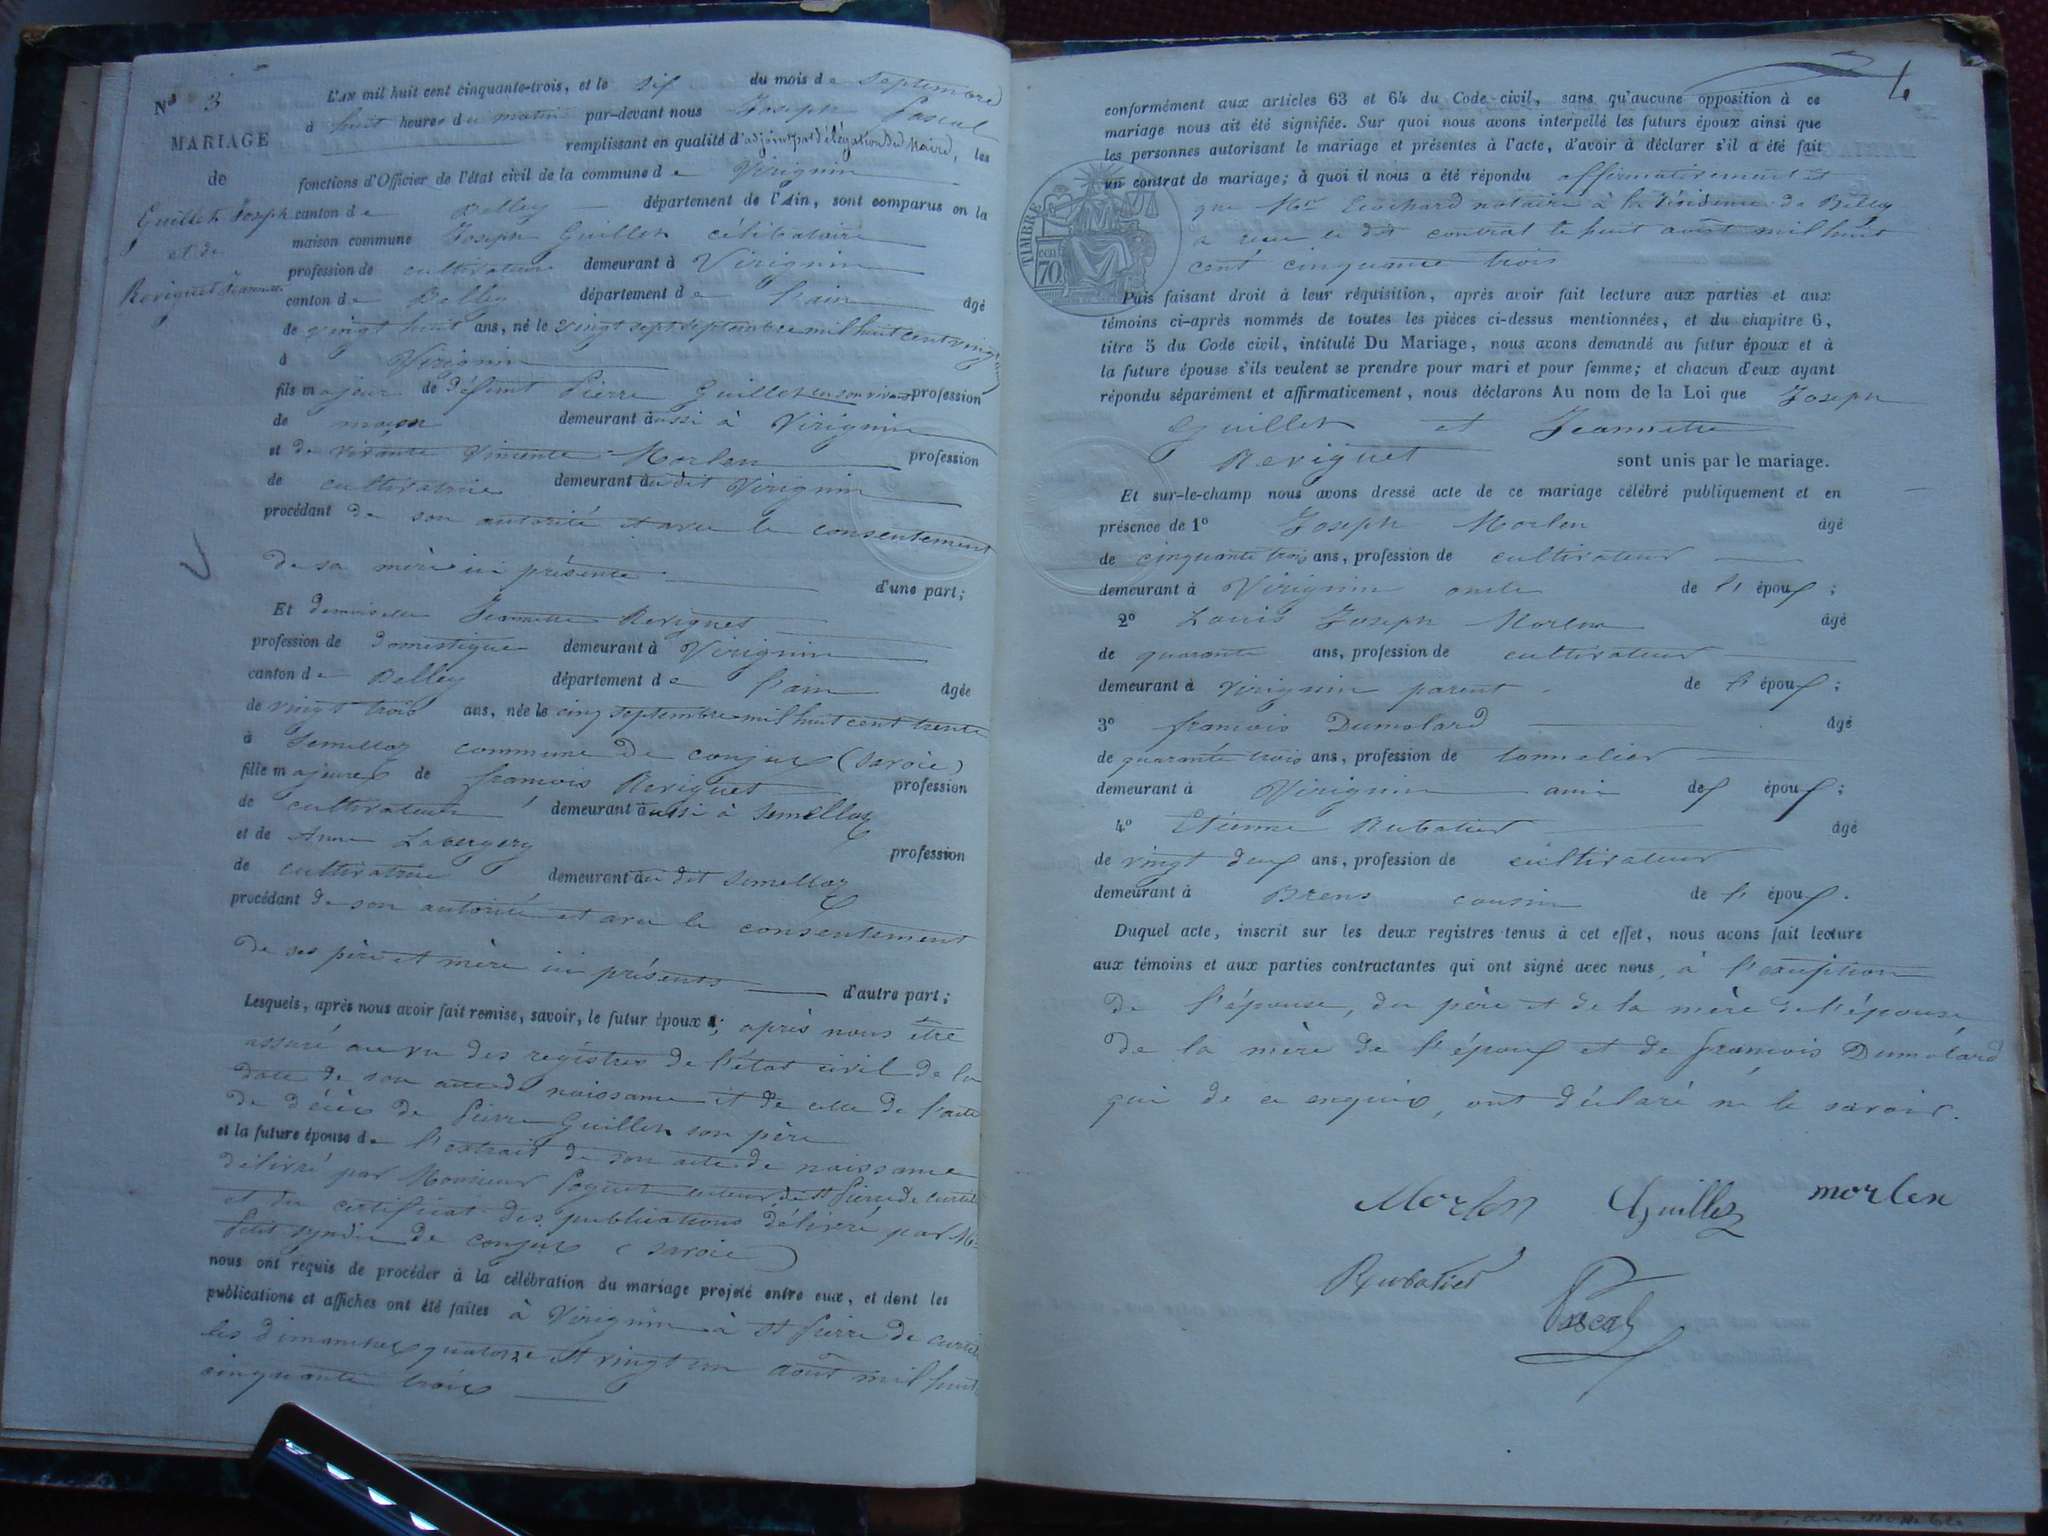 N° 3
MARIAGE
de
Guillet Joseph
et de
Reviguet Jeannette
L'AN mil huit cent cinquante-trois, et le six du mois de Septembre
à huit heures du matin par-devant nous Joseph Pascal
remplissant en qualité d'adjoint par délégation du Maire, les
fonctions d'Officier de l'état civil de la commune de Virignin
canton de Belley département de l'Ain, sont comparus en la
maison commune Joseph Guillet célibataire
profession de cultivateur demeurant à Virignin
canton de Belley département de l'ain âgé
de vingt huit ans, né le vingt sept septembre mil huit cent vingt
à Virignin
fils majeur de défunt Pierre Guillet en son vivant profession
de maçon demeurant aussi à Virignin
et de vivante Vincente Morlen profession
de cultivatrice demeurant au dit Virignin
procédant de son autorité et avec le consentement
de sa mère ici présente d'une part;
Et demoiselle Jeannette Reviguet
profession de domestique demeurant à Virignin
canton de Belley département de l'ain âgée
de vingt trois ans, née le cinq septembre mil huit cent trente
à Semellaz commune de conjux (savoie)
fille majeure de francois Reviguet profession
de cultivateur demeurant aussi à Semellaz
et de Anne Lavergery profession
de cultivatrice demeurant au dit Semellaz
procédant de son autorité et avec le consentement
de ses père et mère ici présents d'autre part;
Lesquels, après nous avoir fait remise, savoir, le futur époux ; après nous être
assuré au vu des registres de l'état civil de la
date de son acte de naissance et de celle de l'acte
de décès de Pierre Guillet son père
et la future épouse de l'extrait de son acte de naissance
délivré par Monsieur recteur de St Pierre de curtille
et du certificat des publications délivré par Mr
Petit syndic de conjux (savoie)
nous ont requis de procéder à la célébration du mariage projeté entre eux, et dont les
publications et affiches ont été faites à Virignin à St Pierre de curtille
les dimanches quatorze et vingt un août mil huit
cinquante trois
conformément aux articles 63 et 64 du Code civil, sans qu'aucune opposition à ce
mariage nous ait été signifiée. Sur quoi nous avons interpellé les futurs époux ainsi que
les personnes autorisant le mariage et présentes à l'acte, d'avoir à déclarer s'il a été fait
un contrat de mariage; à quoi il nous a été répondu affirmativement et
que Me notaire à la résidence de Belley
a reçu le dit contrat le huit août mil huit
cent cinquante trois
TIMBRE
70
Puis faisant droit à leur réquisition, après avoir fait lecture aux parties et aux
témoins ci-après nommés de toutes les pièces ci-dessus mentionnées, et du chapitre 6,
titre 5 du Code civil, intitulé Du Mariage, nous avons demandé au futur époux et à
la future épouse s'ils veulent se prendre pour mari et pour femme; et chacun d'eux ayant
répondu séparément et affirmativement, nous déclarons Au nom de la Loi que Joseph
Guillet et Jeannette
Reviguet sont unis par le mariage.
Et sur-le-champ nous avons dressé acte de ce mariage célébré publiquement et en
présence de 1° Joseph Morlen âgé
de cinquante trois ans, profession de cultivateur
demeurant à Virignin oncle de l' époux ;
2° Louis Joseph Morlen âgé
de quarante ans, profession de cultivateur
demeurant à Virignin parent de l' époux ;
3° francois Dumolard âgé
de quarante trois ans, profession de tonnelier
demeurant à Virignin ami des époux ;
4° Etienne Rubatier âgé
de vingt deux ans, profession de cultivateur
demeurant à Brens cousin de l' époux .
Duquel acte, inscrit sur les deux registres tenus à cet effet, nous avons fait lecture
aux témoins et aux parties contractantes qui ont signé avec nous, à l'exception
de l'épouse, du père et de la mère de l'épouse
de la mère de l'époux et de francois Dumolard
qui de ce enquis, ont déclaré ne le savoir.
Morlen Guillet morlen
Rubatier
Pascal